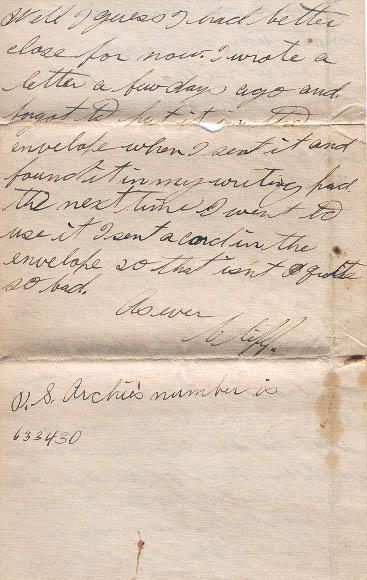 Well I guess I had better
close for now. I wrote a
letter a few days ago and
forgot to put it in the
envelope when I sent it and
found it in my writing pad
the next time I went to
use it I sent a card in the
envelope so that isn't quite
so bad.
As ever
P.S. Archie's number is
633430